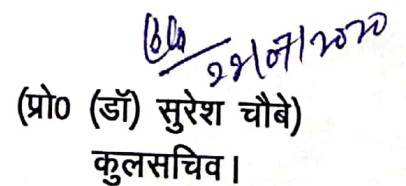 22/07/2020
(प्रो0 (डॉ) सुरेश चौबे)
कुलसचिव।